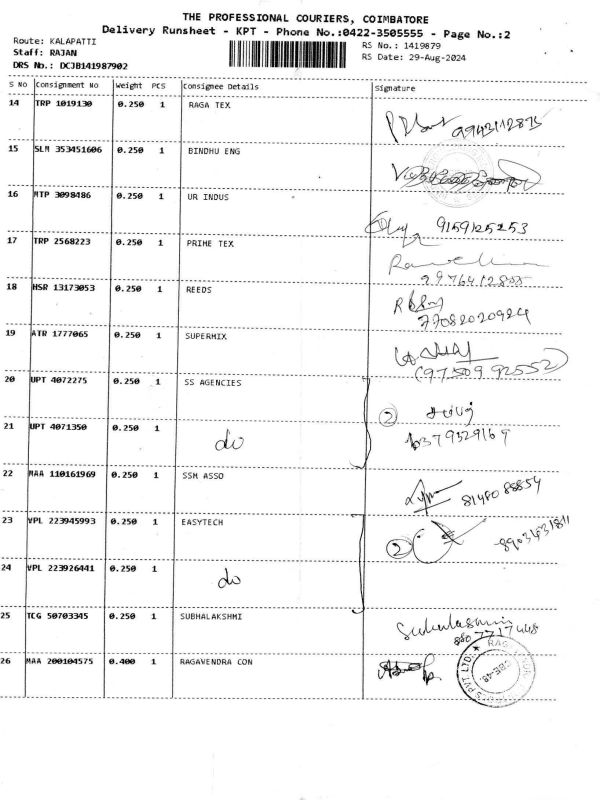 THE PROFESSIONAL COURIERS, COIMBATORE
Delivery Runsheet - KPT - Phone No.:0422-3505555 - Page No.:2
Route: KALAPATTI
RS No.: 1419879
Staff: RAJAN
RS Date: 29-Aug-2024
DRS No.: DCJB141987902
S NO Consignment No Weight PCS Consignee Details Signature
14 TRP 1019130 0.250 1 RAGA TEX
9943112875
15 SLM 353451606 0.250 1 BINDHU ENG
16 MTP 3098486 0.250 1 UR INDUS
9159125253
17 TRP 2568223 0.250 1 PRIHE TEX
18 HSR 13173053 0.250 1 REEDS
77082020924
19 ATR 1777065 0.250 1 SUPERMIX
(97509 92552)
20 UPT 4072275 0.250 1 SS AGENCIES
2
21 UPT 4071350 0.250 1 do
6379529169
22 MAA 110161969 0.250 1 SSM ASSO
81480 88854
23 VPL 223945993 0.250 1 EASYTECH
2
24 VPL 223926441 0.250 1 do
25 TCG 50703345 0.250 1 SUBHALAKSHMI
880 7717448
26 MAA 200104575 0.400 1 RAGAVENDRA CON
PVT LTD. ★ CBE-48.